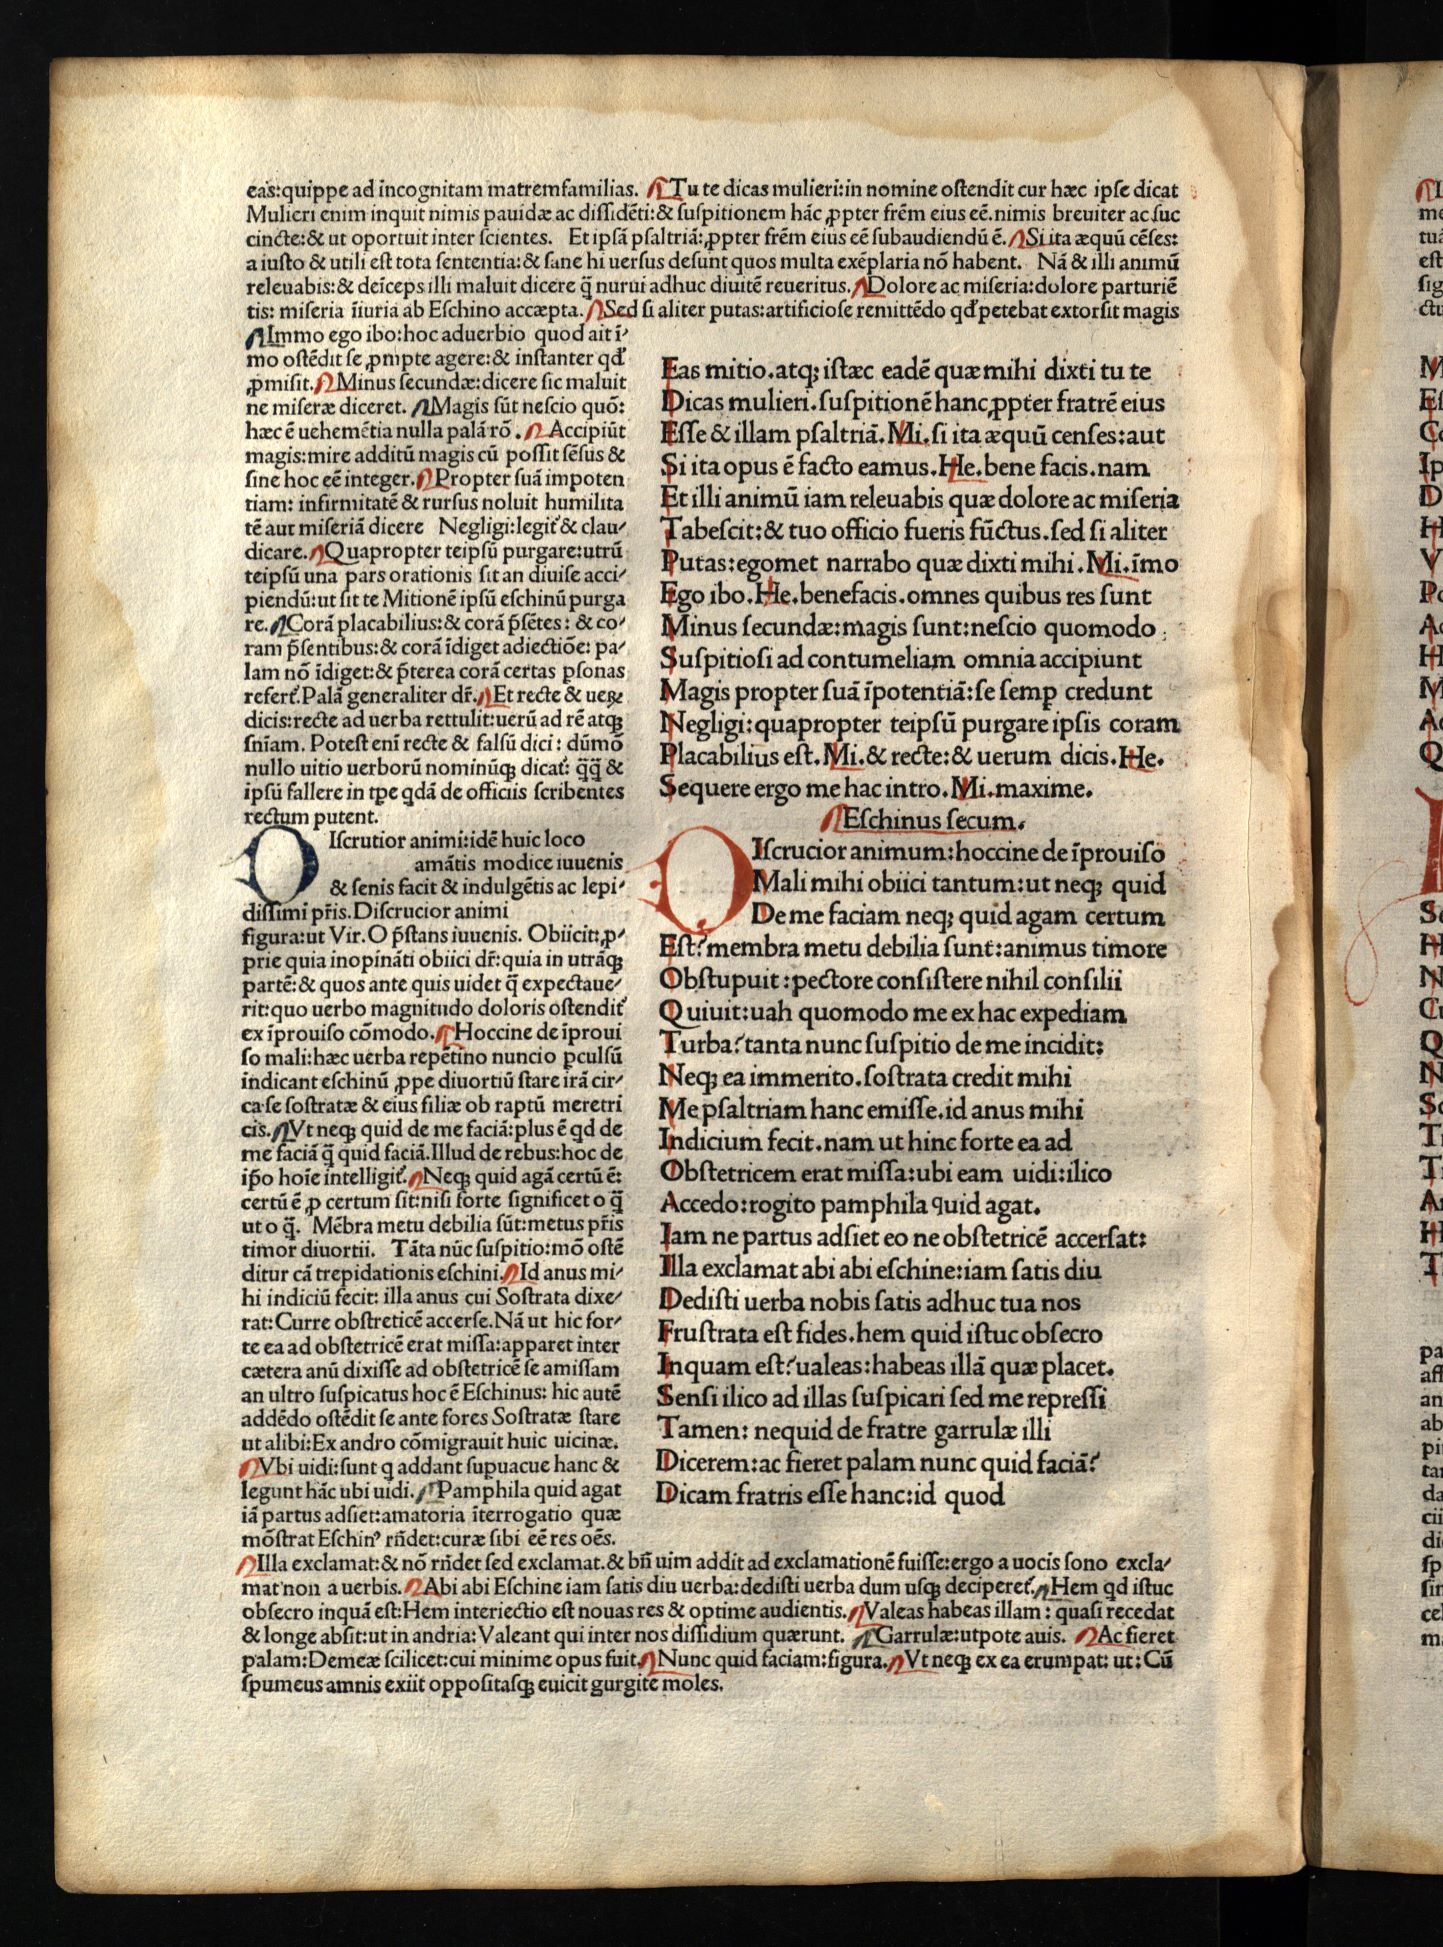 eas:quippe ad incognitam matremfamilias. Tu te dicas mulieri:in nomine ostendit cur hæc ipse dicat
Mulieri enim inquit nimis pauidæ ac dissidẽti:& suspitionem hãc ꝓpter frẽm eius eẽ.nimis breuiter ac suc
cincte:& ut oportuit inter scientes. Et ipsã psaltriã:ꝓpter frẽm eius eẽ subaudiendũ ẽ. Si ita æquũ cẽses:
a iusto & utili est tota sententia:& sane hi uersus desunt quos multa exẽplaria nõ habent. Nã & illi animũ
releuabis:& deĩceps illi maluit dicere q̃ nurui adhuc diuitẽ reueritus. Dolore ac miseria:dolore parturiẽ
tis: miseria ĩiuria ab Eschino accæpta. Sed si aliter putas:artificiose remittẽdo qđ petebat extorsit magis
Immo ego ibo:hoc aduerbio quod ait ĩ⸗
mo ostẽdit se ꝓmpte agere:& instanter qđ
ꝓmisit. Minus secundæ:dicere sic maluit
ne miseræ diceret. Magis sũt nescio quõ:
hæc ẽ uehemẽtia nulla palã rõ. Accipiũt
magis:mire additũ magis cũ possit sẽsus &
sine hoc eẽ integer. Propter suã impoten
tiam: infirmitatẽ & rursus noluit humilita
tẽ aut miseriã dicere Negligi:legit᷑ & clau⸗
dicare. Quapropter teipsũ purgare:utrũ
teipsũ una pars orationis sit an diuise acci⸗
piendũ:ut sit te Mitionẽ ipsũ eschinũ purga
re. Corã placabilius:& corã p̃sẽtes: & co⸗
ram p̃sentibus:& corã ĩdiget adiectiõe: pa⸗
lam nõ ĩdiget:& p̃terea corã certas ꝑsonas
refert᷑ Palã generaliter dr̃. Et recte & ueꝝ
dicis:recte ad uerba rettulit:uerũ ad rẽ atqꝫ
sñiam. Potest enĩ recte & falsũ dici: dũmõ
nullo uitio uerborũ nominũqꝫ dicat᷑: q̃q̃ &
ipsũ fallere in tꝑe qdã de officiis scribentes
rectum putent.
O Iscrutior animi:idẽ huic loco
amãtis modice iuuenis
& senis facit & indulgẽtis ac lepi⸗
dissimi pr̃is. Discrucior animi
figura:ut Vir. O p̃stans iuuenis. Obiicit:ꝓ⸗
prie quia inopinãti obiici dr̃:quia in utrãqꝫ
partẽ:& quos ante quis uidet q̃ expectaue⸗
rit:quo uerbo magnitudo doloris ostendit᷑
ex ĩprouiso cõmodo. Hoccine de ĩproui
so mali:hæc uerba repẽtino nuncio ꝑculsũ
indicant eschinũ ꝓpe diuortiũ stare irã cir⸗
ca se sostratæ & eius filiæ ob raptũ meretri
cis. Vt neqꝫ quid de me faciã:plus ẽ qd de
me faciã q̃ quid faciã.Illud de rebus:hoc de
ip̃o hoĩe intelligit᷑. Neqꝫ quid agã certũ ẽ:
certũ ẽ ꝓ certum sit:nisi forte significet o q̃
ut o q̃. Mẽbra metu debilia sũt:metus pr̃is
timor diuortii. Tãta nũc suspitio:mõ ostẽ
ditur cã trepidationis eschini. Id anus mi⸗
hi indiciũ fecit: illa anus cui Sostrata dixe⸗
rat:Curre obstreticẽ accerse.Nã ut hic for⸗
te ea ad obstetricẽ erat missa:apparet inter
cætera anũ dixisse ad obstetricẽ se amissam
an ultro suspicatus hoc ẽ Eschinus: hic autẽ
addẽdo ostẽdit se ante fores Sostratæ stare
ut alibi:Ex andro cõmigrauit huic uicinæ.
Vbi uidi:sunt q addant supuacue hanc &
legunt hãc ubi uidi. Pamphila quid agat
iã partus adsiet:amatoria ĩterrogatio quæ
mõstrat Eschinꝰ rñdet:curæ sibi eẽ res oẽs.
Eas mitio.atqꝫ istæc eadẽ quæ mihi dixti tu te
Dicas mulieri.suspitionẽ hanc ꝓpter fratrẽ eius
Esse & illam psaltriã. Mi. si ita æquũ censes:aut
Si ita opus ẽ facto eamus. He. bene facis.nam
Et illi animũ iam releuabis quæ dolore ac miseria
Tabescit:& tuo officio fueris fũctus.sed si aliter
Putas:egomet narrabo quæ dixti mihi. Mi. ĩmo
Ego ibo. He. benefacis.omnes quibus res sunt
Minus secundæ:magis sunt:nescio quomodo
Suspitiosi ad contumeliam omnia accipiunt
Magis propter suã ĩpotentiã:se semꝑ credunt
Negligi:quapropter teipsũ purgare ipsis coram
Placabilius est. Mi. & recte:& uerum dicis. He.
Sequere ergo me hac intro. Mi. maxime.
Eschinus secum.
O Iscrucior animum:hoccine de ĩprouiso
Mali mihi obiici tantum:ut neqꝫ quid
De me faciam neqꝫ quid agam certum
Est? membra metu debilia sunt:animus timore
Obstupuit:pectore consistere nihil consilii
Quiuit:uah quomodo me ex hac expediam
Turba? tanta nunc suspitio de me incidit:
Neqꝫ ea immerito.sostrata credit mihi
Me psaltriam hanc emisse.id anus mihi
Indicium fecit.nam ut hinc forte ea ad
Obstetricem erat missa:ubi eam uidi:ilico
Accedo:rogito pamphila quid agat.
Iam ne partus adsiet eo ne obstetricẽ accersat:
Illa exclamat abi abi eschine:iam satis diu
Dedisti uerba nobis satis adhuc tua nos
Frustrata est fides.hem quid istuc obsecro
Inquam est? ualeas:habeas illã quæ placet.
Sensi ilico ad illas suspicari sed me repressi
Tamen: nequid de fratre garrulæ illi
Dicerem:ac fieret palam nunc quid faciã?
Dicam fratris esse hanc:id quod
Illa exclamat:& nõ rñdet sed exclamat.& bñ uim addit ad exclamationẽ fuisse:ergo a uocis sono excla⸗
mat non a uerbis. Abi abi Eschine iam satis diu uerba:dedisti uerba dum usqꝫ deciperet᷑. Hem qd istuc
obsecro inquã est:Hem interiectio est nouas res & optime audientis. Valeas habeas illam: quasi recedat
& longe absit:ut in andria: Valeant qui inter nos dissidium quærunt. Garrulæ:utpote auis. Ac fieret
palam:Demeæ scilicet:cui minime opus fuit. Nunc quid faciam:figura. Vt neqꝫ ex ea erumpat: ut: Cũ
spumeus amnis exiit oppositasqꝫ euicit gurgite moles.